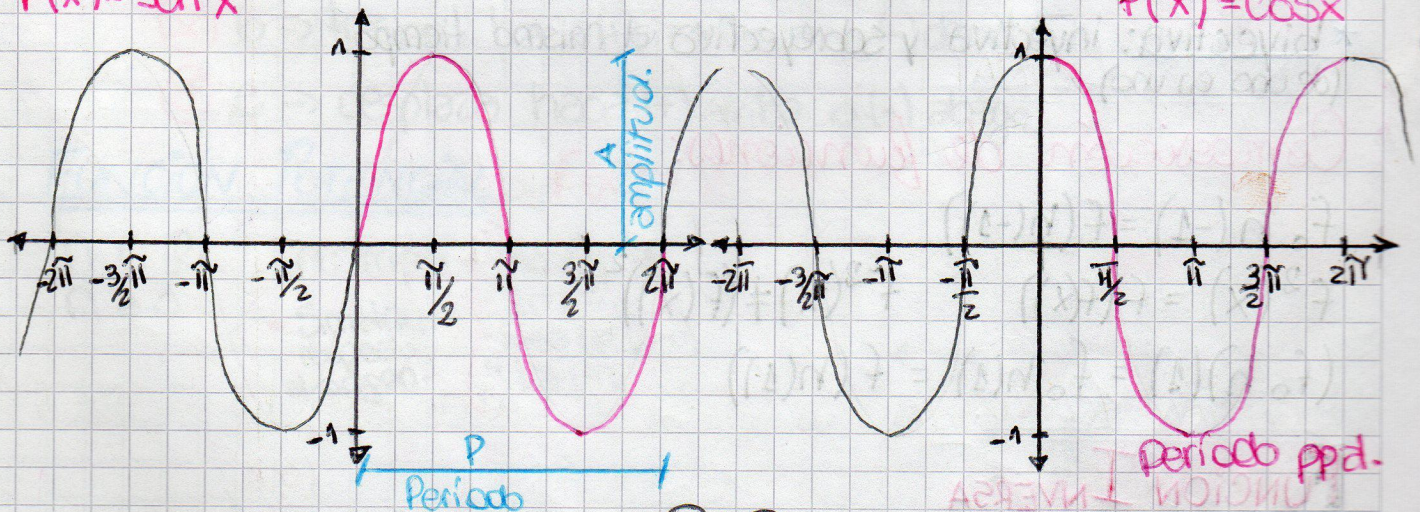 f(x)=sen x
f(x)=cosx
1
A
amplitud.
-2π -3/2π -π -π/2 π/2 π 3/2π 2π
-1
P
Período
1
-2π -3/2π -π -π/2 π/2 π 3/2π 2π
-1
período ppal.